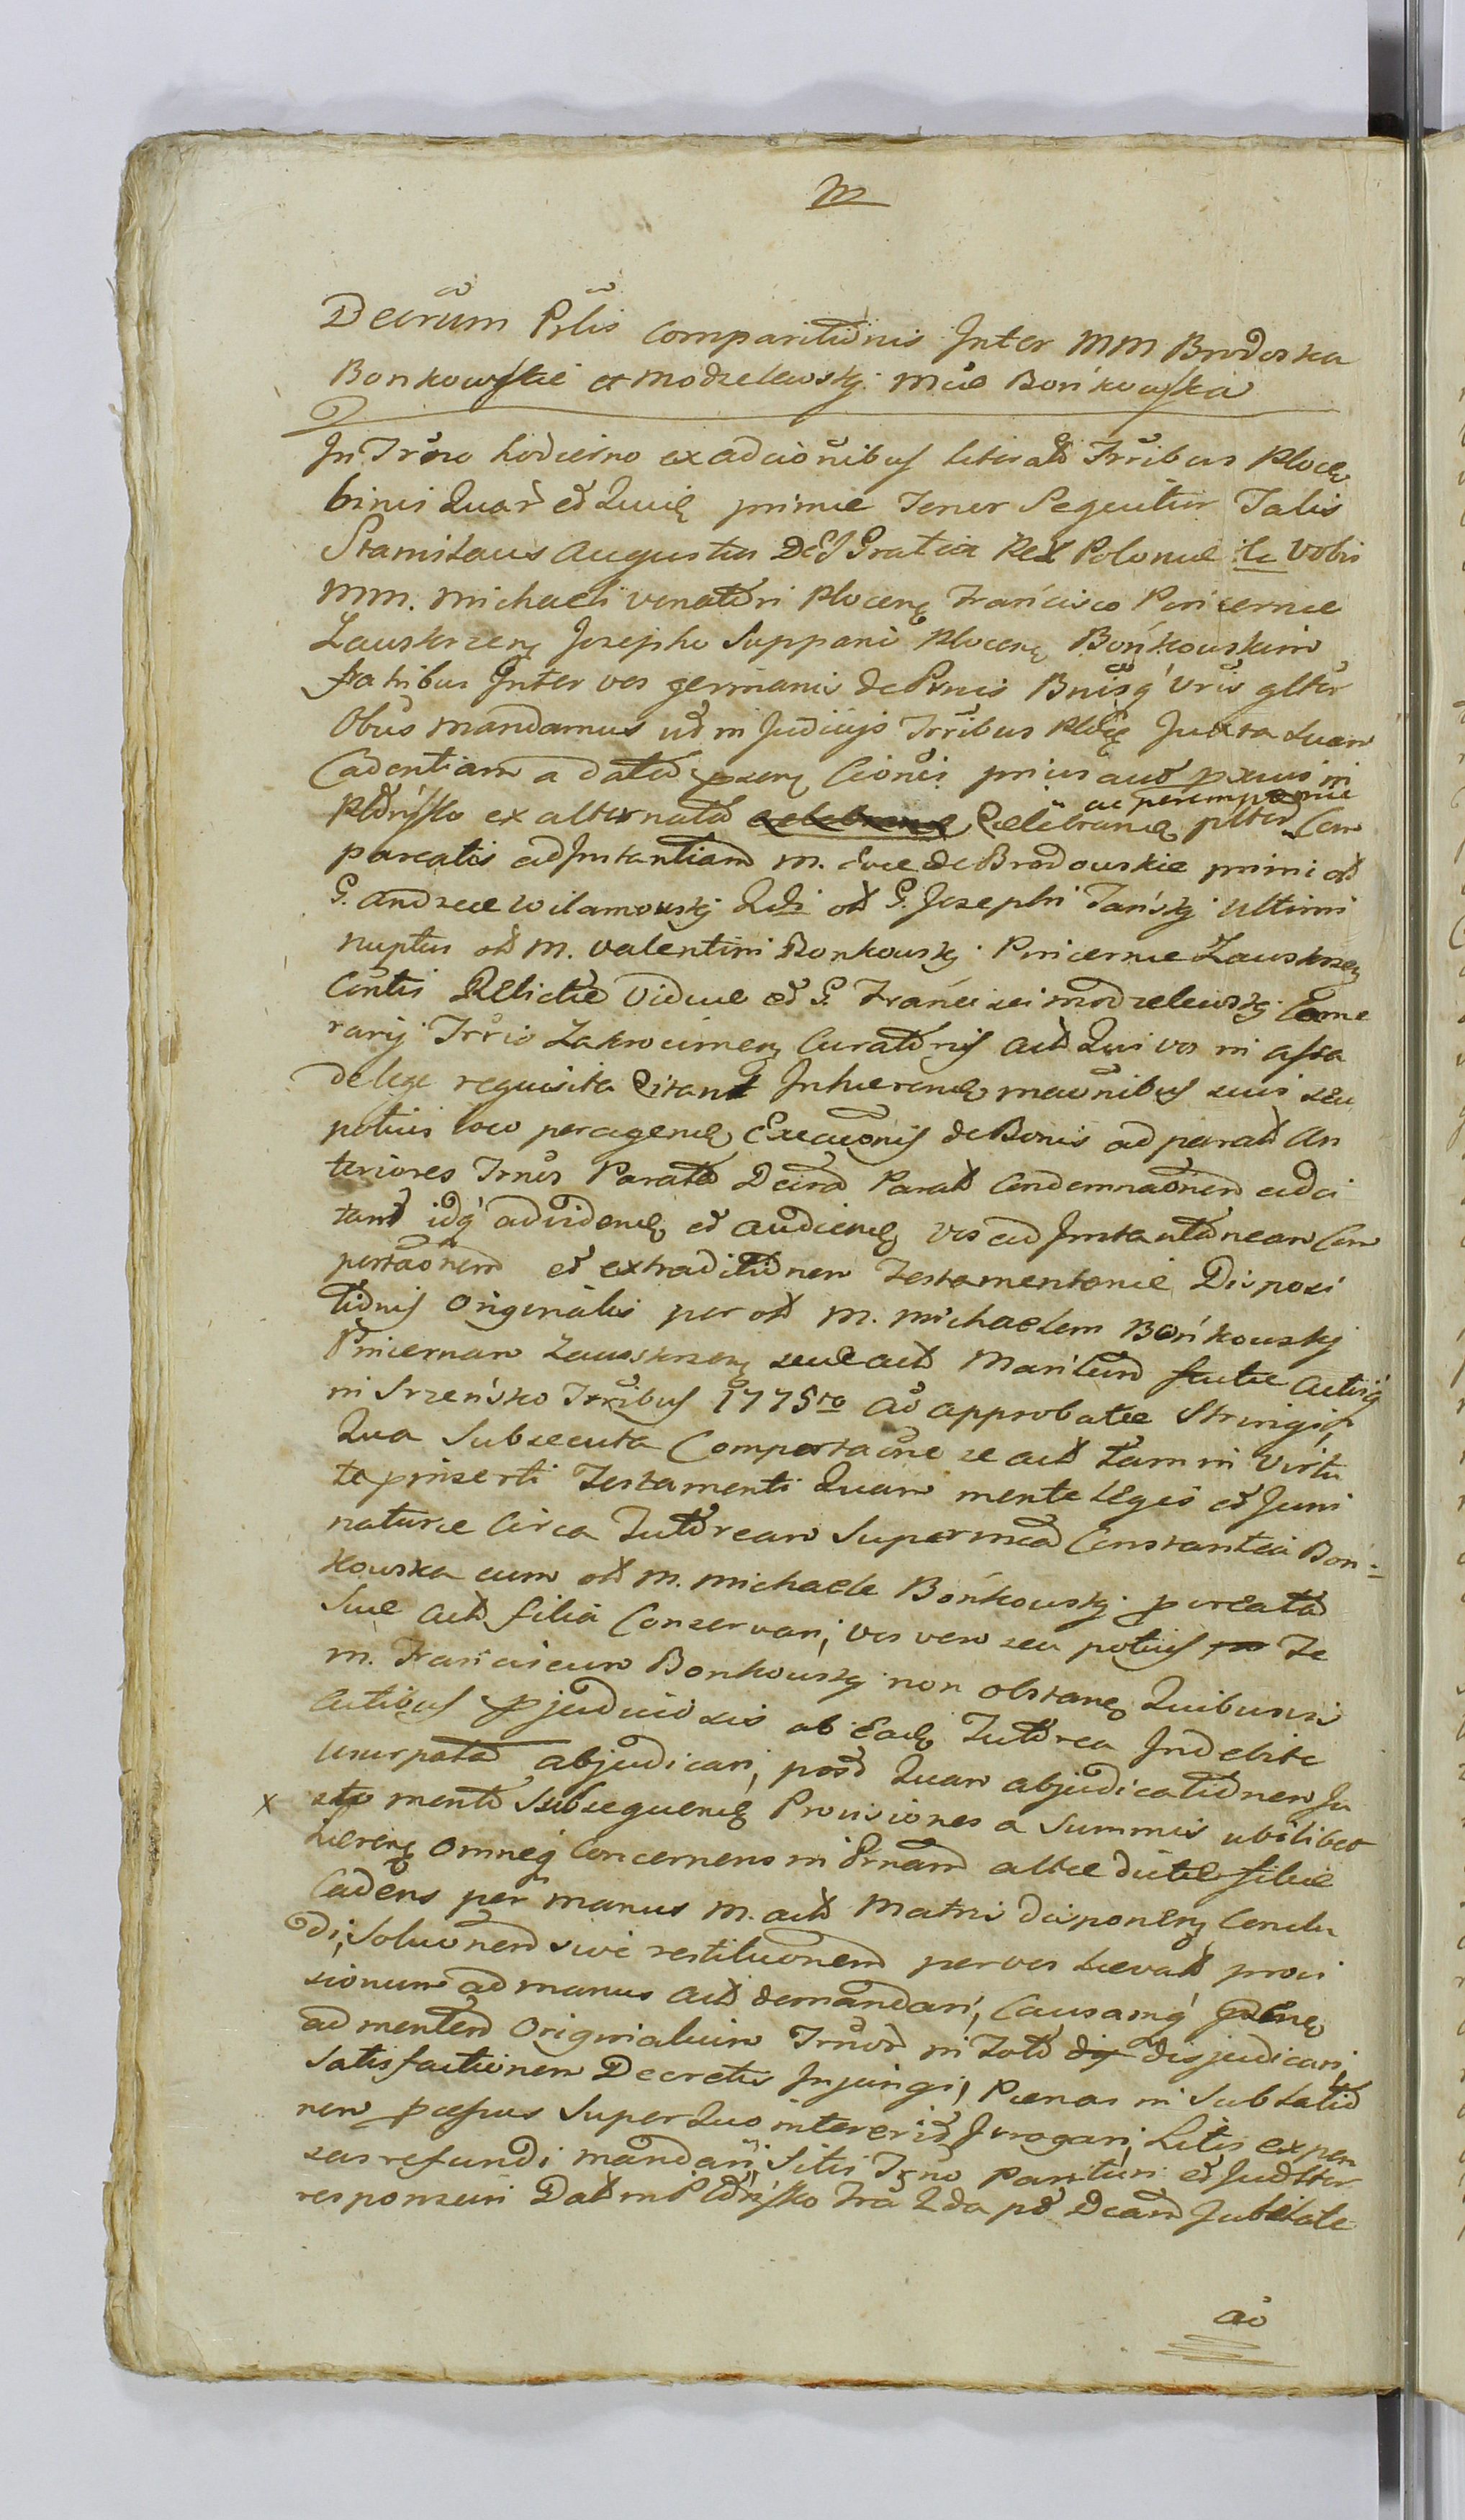 M
Decrum Prlis Comparitionis Inter MM Brodoska
Bonkowskie et Modzelewskj Mae Bońkowska
In Trno hodierno ex adcionibus literat Trribus Plocen
binis Quar et Quie primae Tenor Sequitur Talis
Stanislaus Augustus DEI Gratia Rex Poloniae &c Vobis
MM. Michaeli Venatori Plocen Francisco Pincernae
Zawskrzen Josepho Suppano Plocen Bońkowskim
fratribus Inter vos germanis de Psnis Bnisq Vris gltr
Obus mandamus ut in Judicijs Trribus Plocen Juxta Suam
Cadentiam a data psen Cionis prius aut pxius in
Płońsko ex alternata Celebrand pltr ac peremptorie Com
pareatis ad Instantiam M. Evae de Brodowskie primi olt
G. Andreae Wilamowskj 2di olt G. Josephi Tańskj ultimi
nuptus olt M. Valentini Bonkowskj Pincernae Zawskrzen
Contis Relictae Viduae et G. Francisci Modzelewskj Came
rarij Trrio Zakrocimen Curatoris act Qui vos in assa
de lege requisita Citant Inhaeren maonibus suis seu
potius loco peragend Execuonis de Bonis ad parat An
teriores Trnos Parata Decra Parat Condemnaonem adci
tant idq ad vidend et audiend vos ad Instantaneam Com
portaonem et extraditionem Testamentariae Disposi
tionis Originalis per olt M. Michaelem Bońkowskj
Pincernam Zawskrzen suae act Maritum factae Actisq
in Srzeńsko Trribus 1775to Ao approbatae Stringi,
Qua Subsecuta Comportaone se act tam in Virtu
te prinserti Testamenti Quam mente Legis et Juris
naturae Circa Tutoream Super mca Constantia Boń-
kowska cum olt M. Michaele Bońkowskj procreata
Sua act filia Conservari, vos vero seu potius Te
M. Franciscum Bonkowskj non obstan Quibusvis
Actibus pjudiciosis ab Ead Tutorea Indebite
Usurpata abjudicari, post Quam abjudicationem Ju
x sto mento Subsequend Provisiones a Summis ubilibet
haeren omneq Concernens in Ornam altae dictae filiae
Cadens per manus M. act Matris disponen Conclu
di, Soluonem sive restituonem per vos Levat provi
sionum ad manus act demandari, Causamq psen
ad mentem Originalium Trnor in Toto disjudicari
Satisfactionem Decretis Injungi, Paenas in Sublatio
nem paessus Super Quo intererit Irrogari, Litis expen
sas refundi mandari, Sitis Trno parituri et Judltr
responsuri Dat in Płońsko Fra 2da pt Dcam Jubilate
Ao